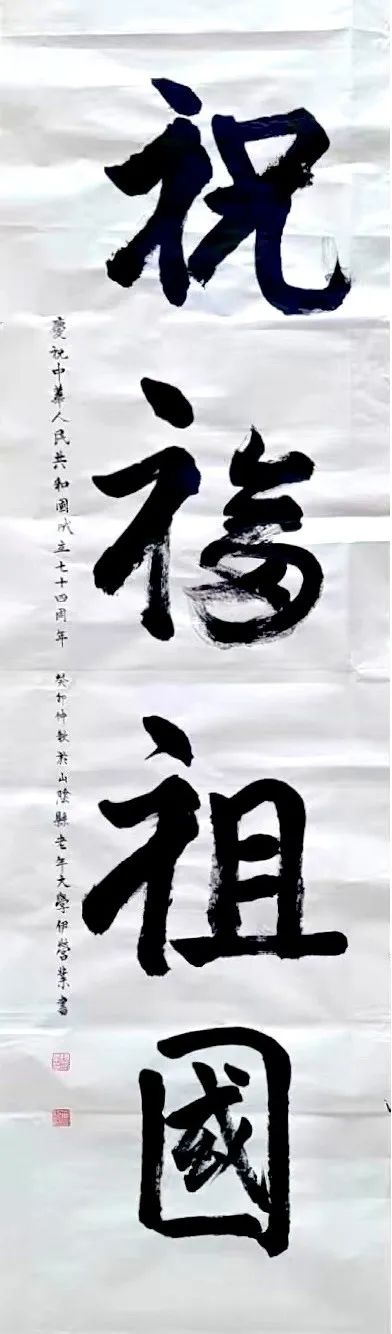 祝福祖國
慶祝中華人民共和國成立七十四周年 癸卯仲秋於山陰縣老年大學伊營業書